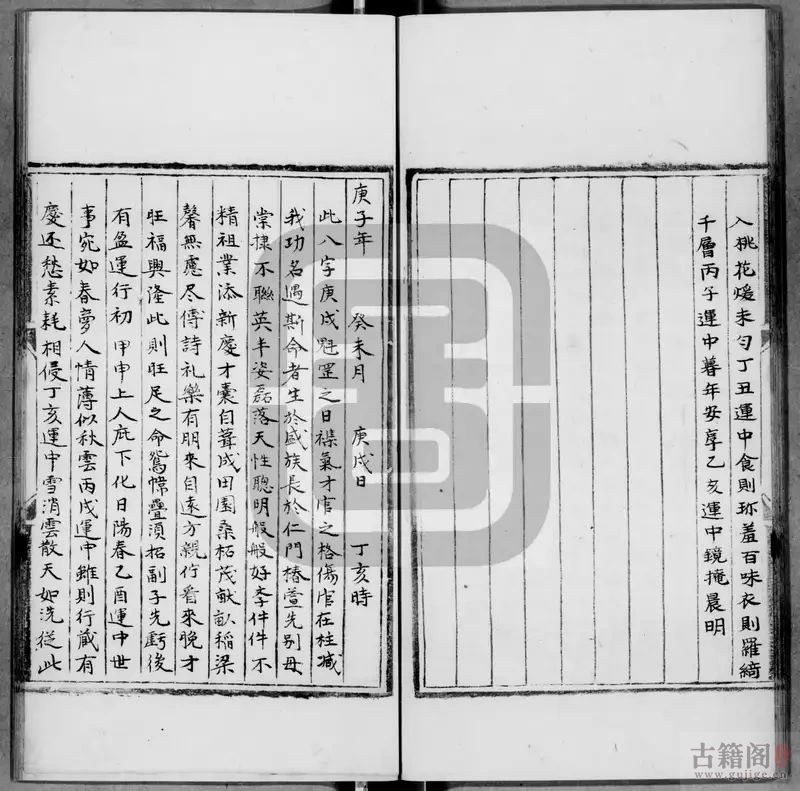 入桃花煖未勻丁丑運中食則珎羞百味衣則羅綺
千層丙子運中暮年安享乙亥運中鏡掩晨明
庚子年 癸未月 庚戌日 丁亥時
此八字庚戌魁罡之日襍氣才官之格傷官在柱減
我功名遇斯命者生於盛族長於仁門椿萱先别母
棠棣不聯英丰姿磊落天性聰明般般好李件件不
精祖業添新慶才囊自葺成田園桑柘茂畎畆稻梁
馨無慮尽傳詩礼樂有朋來自遠方親佇看來晚才
旺福興隆此則旺足之命鴛幃疊須招副子先虧後
有盈運行初甲申上人庇下化日陽春乙酉運中世
事宛如春夢人情薄似秋雲丙戌運中雖則行藏有
慶还愁素耗相侵丁亥運中雪消雲散天如洗從此
古籍阁
www.gujige.cn